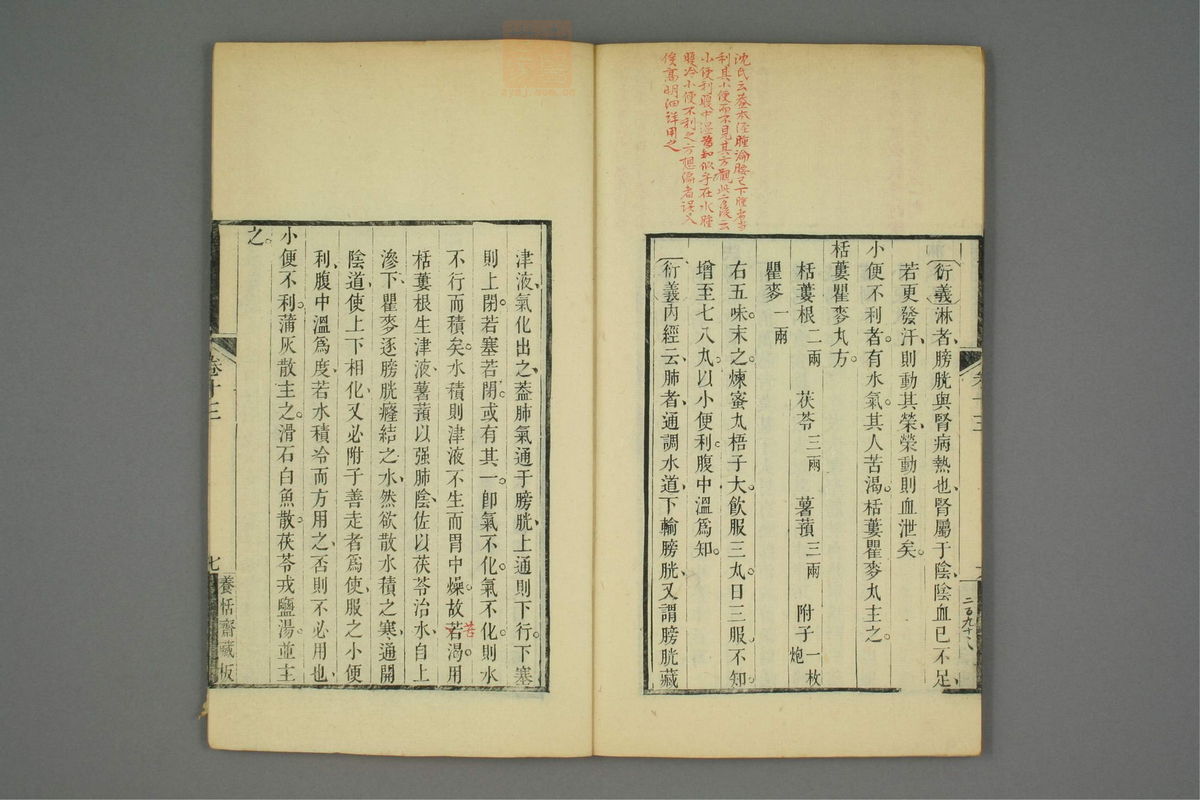 沈氏云蓋本經腫論腰已下腫當
利其小便而不見其方觀此方後云
小便利腹中溫爲知似乎在水腫
腹冷小便不利之方想編者誤入
俟高明細詳用之
衍義淋者、膀胱與腎病熱也、腎屬于陰、陰血已不足、
若更發汗、則動其榮、榮動則血泄矣。
小便不利者。有水氣。其人苦渴。栝蔞瞿麥丸主之。
栝蔞瞿麥丸方。
栝蔞根二兩 茯苓三兩 薯蕷三兩 附子一枚炮
瞿麥一兩
右五味。末之。煉蜜丸梧子大。飲服三丸。日三服。不知。
增至七八丸。以小便利。腹中溫爲知。
衍義內經云、肺者、通調水道、下輸膀胱、又謂膀胱藏
二百九十八
津液、氣化出之、蓋肺氣通于膀胱、上通則下行。下塞
則上閉。若塞若閉。或有其一。卽氣不化。氣不化。則水
不行而積矣。水積則津液不生而胃中燥。故若渴。用
苦
栝蔞根生津液、薯蕷以强肺陰、佐以茯苓治水、自上
滲下、瞿麥逐膀胱癃結之水、然欲散水積之寒、通開
陰道、使上下相化、又必附子善走者爲使、服之小便
利、腹中溫爲度、若水積冷而方用之、否則不必用也、
小便不利。蒲灰散主之。滑石白魚散。茯苓戎鹽湯。並主
之。
卷十三
七
養恬齋藏板